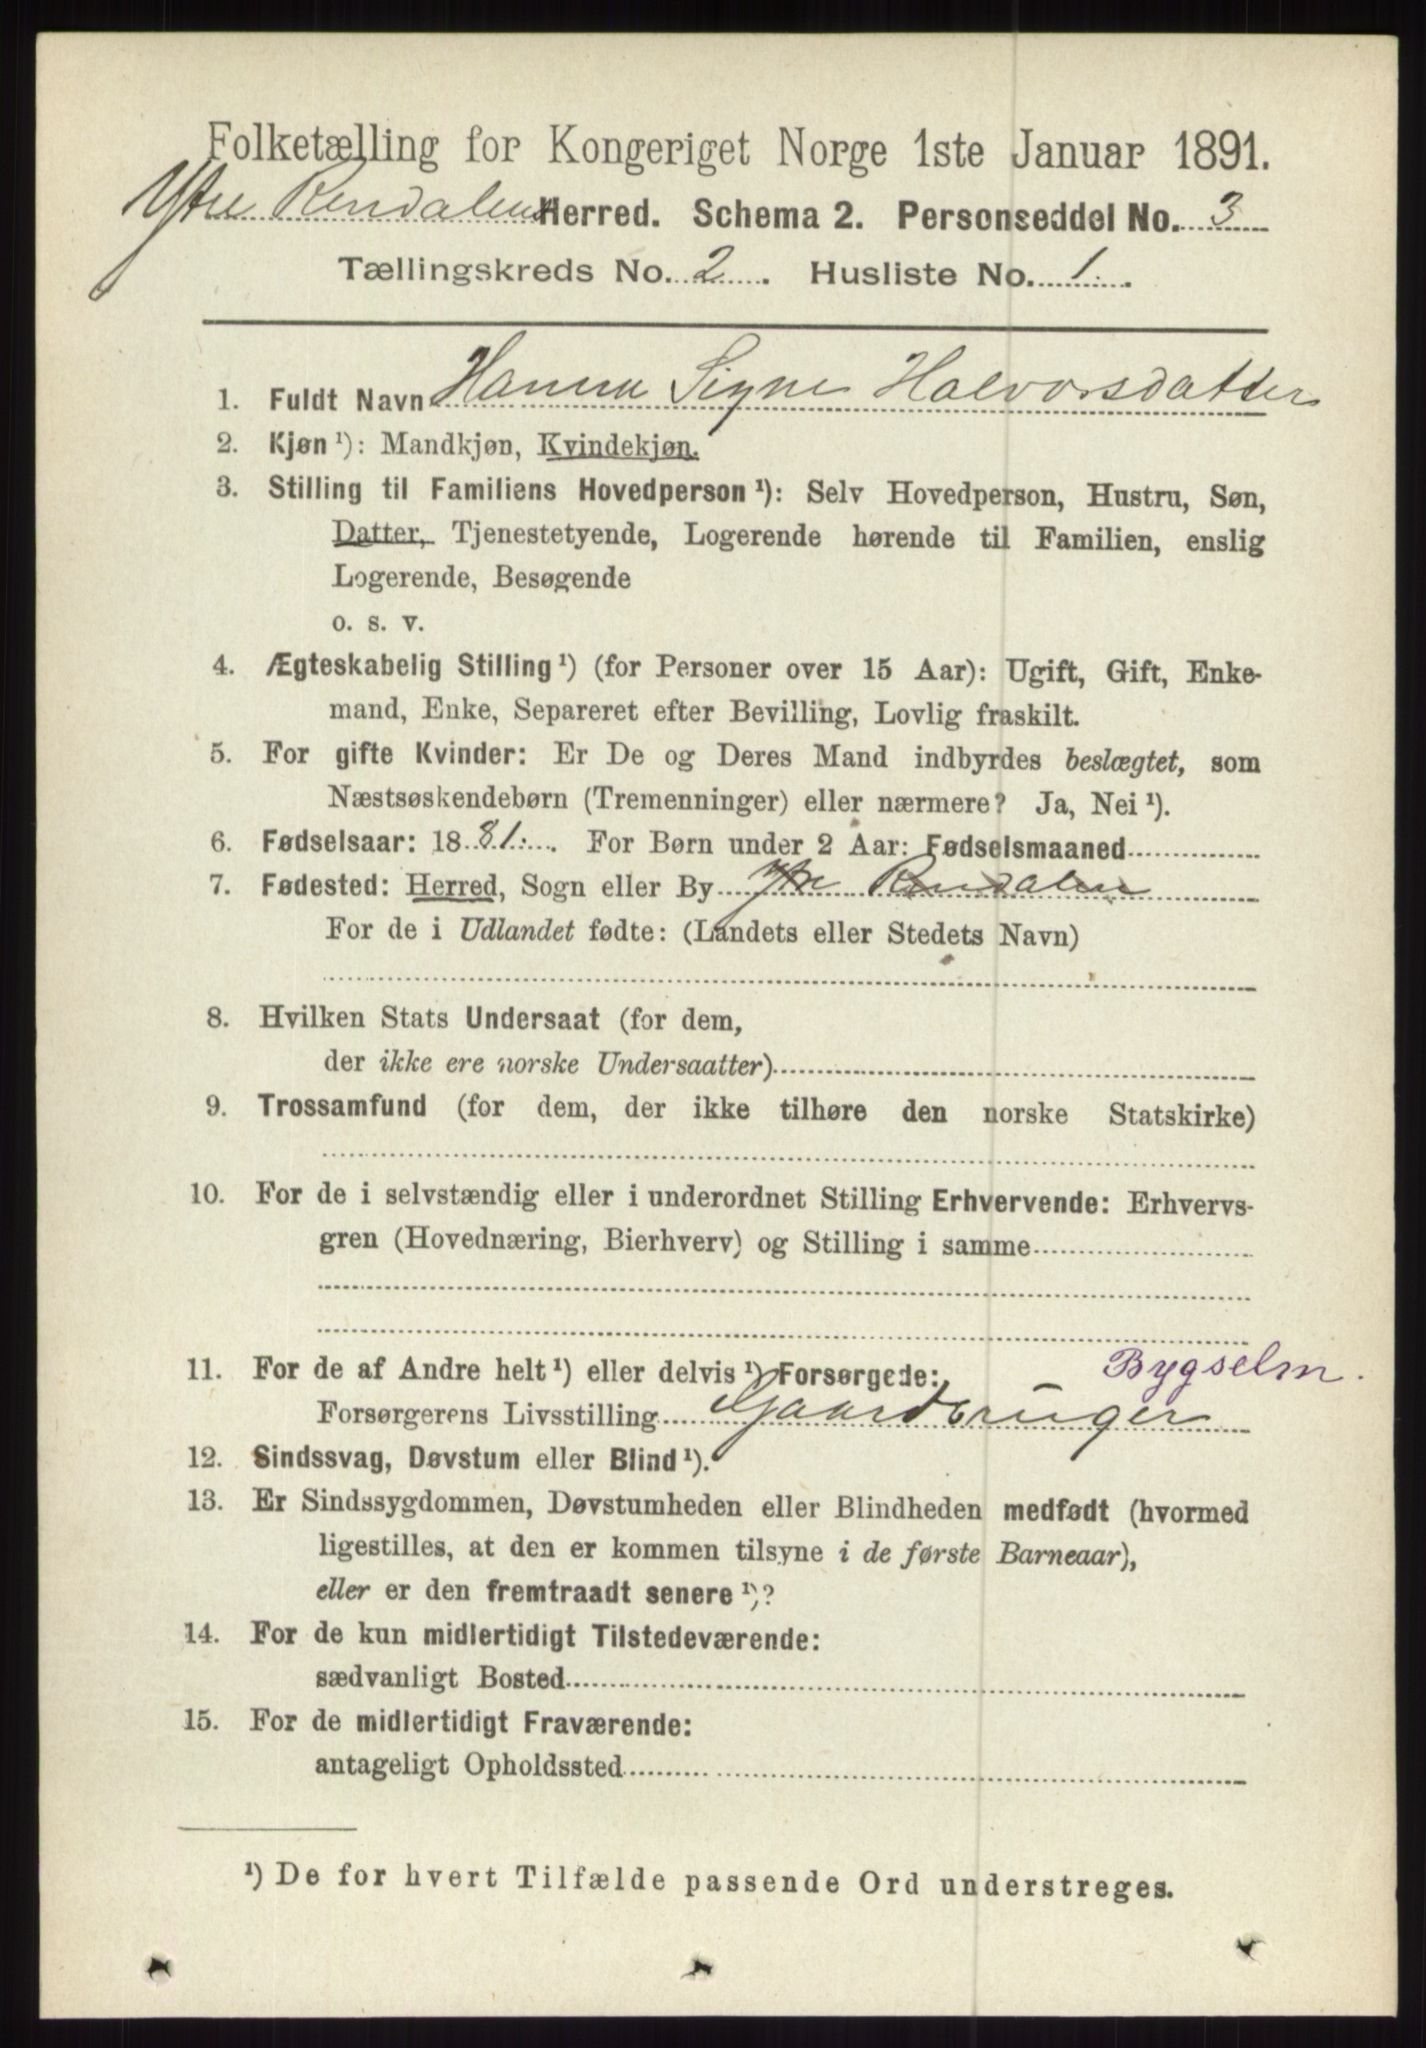 Folketælling for Kongeriget Norge 1ste Januar 1891.
Ytre Rendalens Herred. Schema 2. Personseddel No. 3
Tællingskreds No. 2. Husliste No. 1.
1. Fuldt Navn Hanna Signe Halvorsdatter
2. Kjøn¹): Mandkjøn, Kvindekjøn.
3. Stilling til Familiens Hovedperson¹): Selv Hovedperson, Hustru, Søn,
Datter, Tjenestetyende, Logerende hørende til Familien, enslig
Logerende, Besøgende
o. s. v.
4. Ægteskabelig Stilling¹) (for Personer over 15 Aar): Ugift, Gift, Enke-
mand, Enke, Separeret efter Bevilling, Lovlig fraskilt.
5. For gifte Kvinder: Er De og Deres Mand indbyrdes beslægtet, som
Næstsøskendebørn (Tremenninger) eller nærmere? Ja, Nei¹).
6. Fødselsaar: 1881. For Børn under 2 Aar: Fødselsmaaned
7. Fødested: Herred, Sogn eller By Ytre Rendalen
For de i Udlandet fødte: (Landets eller Stedets Navn)
8. Hvilken Stats Undersaat (for dem,
der ikke ere norske Undersaatter)
9. Trossamfund (for dem, der ikke tilhøre den norske Statskirke)
10. For de i selvstændig eller i underordnet Stilling Erhvervende: Erhvervs-
gren (Hovednæring, Bierhverv) og Stilling i samme
11. For de af Andre helt¹) eller delvis¹) Forsørgede: Bygselm.
Forsørgerens Livsstilling Gaardbruger
12. Sindssvag, Døvstum eller Blind¹).
13. Er Sindssygdommen, Døvstumheden eller Blindheden medfødt (hvormed
ligestilles, at den er kommen tilsyne i de første Barneaar),
eller er den fremtraadt senere¹)?
14. For de kun midlertidigt Tilstedeværende:
sædvanligt Bosted
15. For de midlertidigt Fraværende:
antageligt Opholdssted
¹) De for hvert Tilfælde passende Ord understreges.